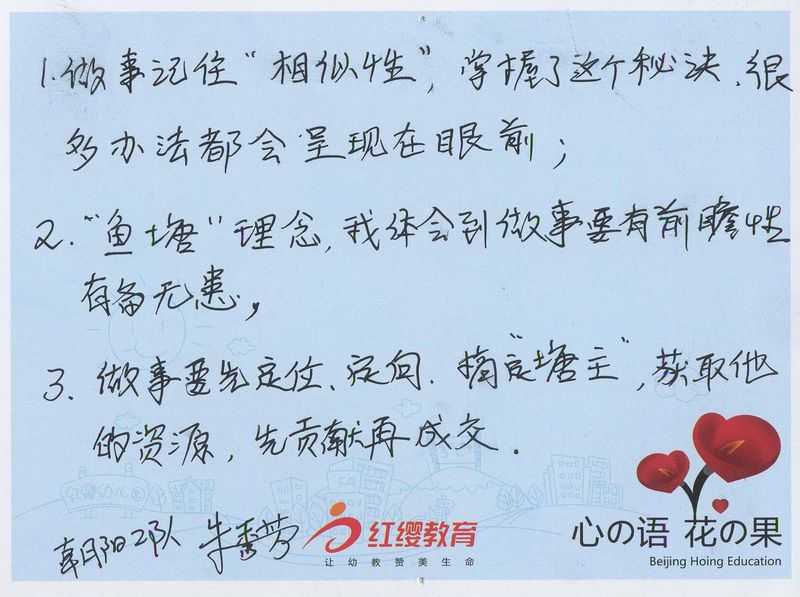 1.做事记住“相似性”,掌握了这个秘诀、很
多办法都会呈现在眼前;
2.“鱼塘”理念,我体会到做事要有前瞻性
有备无患,
3. 做事要先定位、定向.搞定“塘主”,获取他
的资源,先贡献再成交.
朝阳2队
红缨教育
让幼教赞美生命
心の语 花の果
Beijing Hoing Education
红缨幼儿园